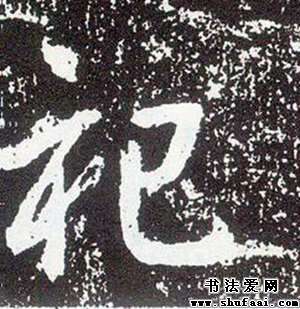 祀
书法爱网
www.shufaai.com